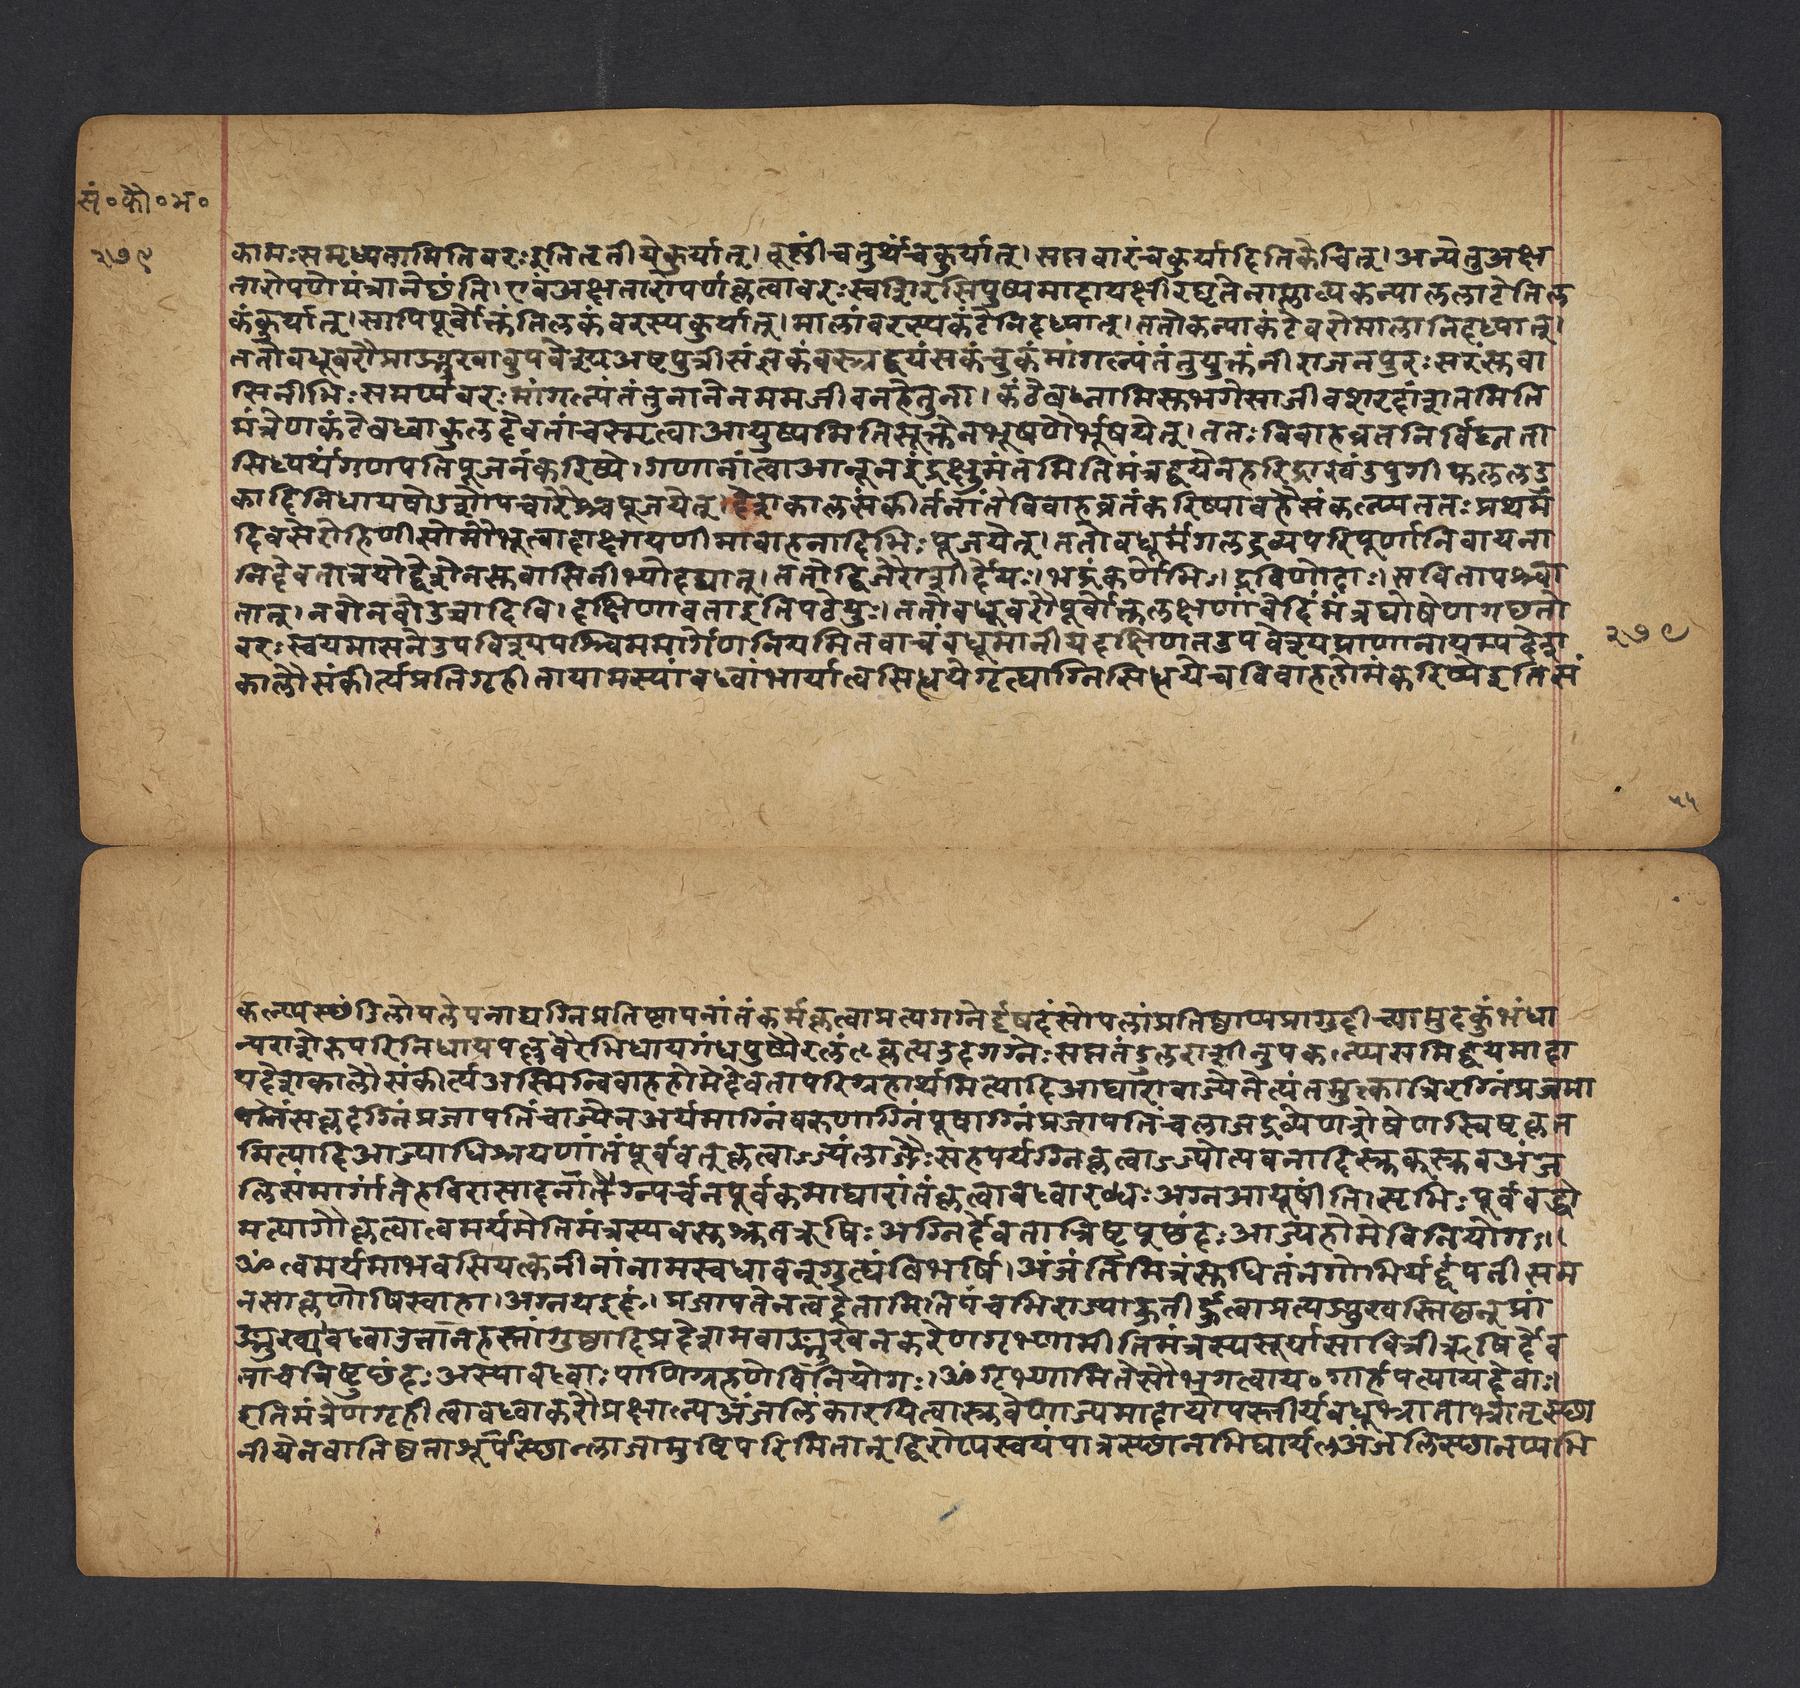 सं॰ कौ॰ भ॰
२७९
कामःसमृध्यतामितिवरःइतितृतीयेकुर्यात्।तूष्णींचतुर्थंचकुर्यात्।सप्तवारंचकुर्यादितिकेचित्।अन्येतुअक्ष
तारोपणेमंत्रानेछंति।एवंअक्षतारोपणंकृत्वावरःस्वशिरसिपुष्पमादायक्षीरघृतेनाप्लाव्यकन्याललाटेतिल
कंकुर्यात्।सापिपूर्वोक्तंतिलकंवरस्यकुर्यात्।मालांवरस्यकंठेनिदध्यात्।ततोकन्याकंठेवरोमालानिदध्यात्।
ततोवधूवरौप्राङ्मुखावुपवेश्यअष्टपुत्रीसंज्ञकंवस्त्रद्वयंसकंचुकंमांगल्यंतंतुयुक्तंनीराजनपुरःसरंसुवा
सिनीभिःसमर्प्यवरःमांगल्यंतंतुनानेनममजीवनहेतुना।कंठेबध्नामिसुभगेसाजीवशरदांशतमिति
मंत्रेणकंठेबध्वाकुलदेवतांचस्मृत्वाआयुष्यमितिसूक्तेनभूषणैर्भूषयेत्।ततःविवाहव्रतनिर्विघ्नता
सिध्यर्थंगणपतिपूजनंकरिष्ये।गणानांत्वाआतूनइंद्रक्षुमंतमितिमंत्रद्वयेनहरिद्राखंडपुगीफललडु
कादिनिधायषोडशोपचारैश्चपूजयेत्।देशकालसंकीर्तनांतेविवाहव्रतंकरिष्यावहैसंकल्प्यततःप्रथमे
दिवसेरोहिणीसोमौभुत्वादाक्षायणीमावाहनादिभिःपूजयेत्।ततोवधूर्मंगलद्रव्यपरिपूर्णानिवायना
निदेवताब्रयोद्देशेनसुवासिनीभ्योदद्यात्।ततोद्विजैराशीर्देयः।भद्रंकर्णेभिः।द्रविणोदाः।सवितापश्चा
तात्।नवोनवोउच्चादिवि।दक्षिणावतांइतिपठेयुः।ततोवधूवरौपूर्वोक्तलक्षणांवेदिंमंत्रघोषेणगछतो
वरःस्वयमासनेउपविश्यपश्चिममार्गेणनियमितवाचंवधूमानीयदक्षिणतउपवेश्यप्राणानायम्यदेश
कालौसंकीर्त्यप्रतिगृहीतायामस्यांवध्वांभार्यात्वसिद्धयेगृह्याग्निसिद्धयेचविवाहहोमंकरिष्येइतिसं
२७९
५५
कल्प्यस्थंडिलोपलेपनाद्यग्निप्रतिष्ठापनांतंकर्मकृत्वाप्रत्यगग्नेर्दृषदंसोपलांप्रतिष्ठाप्यप्रागुदीच्यामुदकुंभंधा
न्यराशेरुपरिनिधायपल्लवैरभिधायगंधपुष्पैरलंकृत्यउदगग्नेःसप्ततंडुलराशीनुपकल्प्यसमिद्वयमादा
यदेशकालौसंकीर्त्यअस्मिन्विवाहहोमेदेवतापरिग्रहार्थमित्यादिआघारावाज्येनेत्यंतमुक्तात्रिरग्निंप्रजमा
पतिंसकृदग्निंप्रजापतिंचाज्येनअर्यमाग्निंवरुणाग्निंपूषाग्निंप्रजापतिंचलाजद्रव्येणशेषेणस्विष्टकृत
मित्यादिआज्याधिश्रयणांतंपूर्ववत्कृत्वाऽऽज्यंलाजैःसहपर्यग्निकृत्वाऽऽज्योत्पवनादिस्रुक्स्रुवअंज
लिसंमार्गांतेहविरासादनांतेग्न्यर्चनपूर्वकमाघारांतंकृत्वावध्वारब्धःअग्नआयूषींति।सृभिःपूर्ववद्धो
मत्यागौकृत्वात्वमर्यमेतिमंत्रस्यवसुश्रुतऋषिःअग्निर्देवतात्रिष्टुप्छंदःआज्यहोमेविनियोगः।।
ॐत्वमर्यमाभवसियत्कनीनांनामस्वधावन्गुह्यंबिभर्षि।अंजंतिमित्रंसुधितंनगोभिर्यद्दंपतीसम
नसाकृणोषिस्वाहा।अग्नयइदं।प्रजापतेनत्वदेतामितिपंचभिराज्याहुतीर्हुत्वाप्रत्यङ्मुखस्तिष्ठन्प्रां
ङ्मुख्यावध्वाउत्तानहस्तांगुष्ठादिप्रदेशमवाङ्मुखेनकरेणगृभ्णामीतिमंत्रस्यसूर्यासावित्रीऋषिर्देव
ताचत्रिष्टुछंदःअस्यावध्वाःपाणिग्रहणेविनियोगः।ॐगृभ्णामितेसौभगत्वाय॰गार्हपत्यायदेवाः।
इतिमंत्रेणगृहीत्वावध्वाकरौप्रक्षाल्यअंजलिंकारयित्वास्रुवेणाज्यमादायोपस्तीर्यवधूभ्राताभ्रातृस्छा
नीयेनवातिष्ठताशूर्पस्छान्लाजामुष्टिपरिमितान्द्विरोप्यस्वयंपात्रस्छानभिघार्यलअंजलिस्छानप्यभि